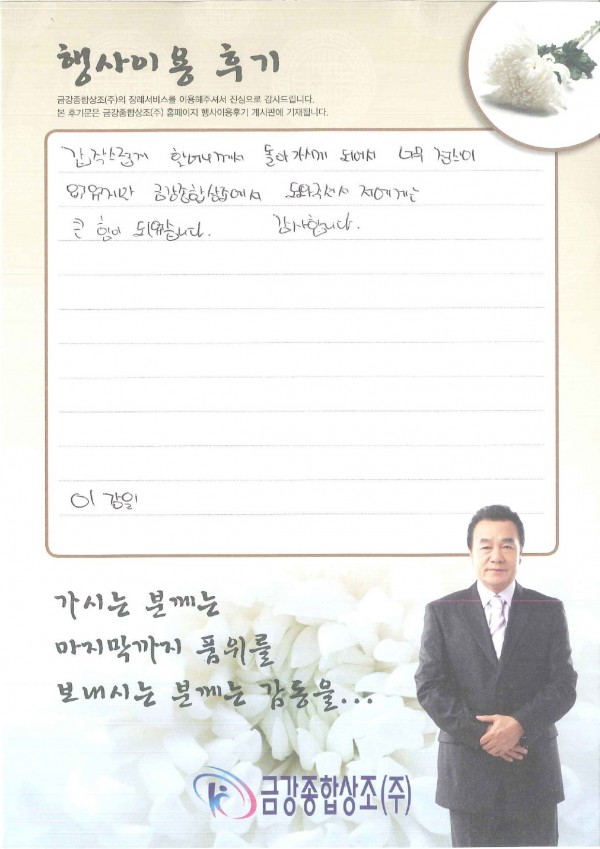 행사이용 후기
금강종합상조(주)의 장례서비스를 이용해주셔서 진심으로 감사드립니다.
본 후기문은 금강종합상조(주) 홈페이지 행사이용후기 게시판에 기재됩니다.
갑작스럽게 할머니께서 돌아가시게 되어서 너무 정신이
없었지만 금강종합상조에서 도와주셔서 저에게는
큰 힘이 되었습니다. 감사합니다.
이 갑일
가시는 분께는
마지막까지 품위를
보내시는 분께는 감동을...
금강종합상조(주)